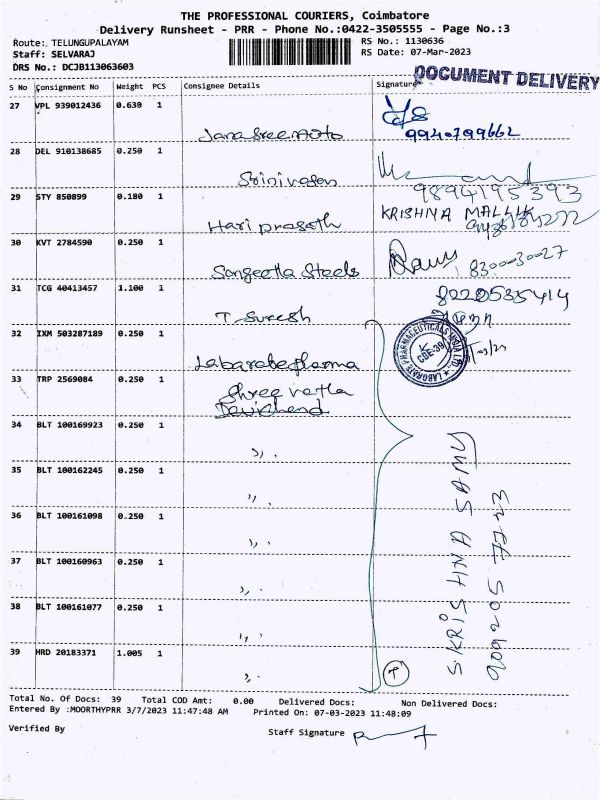 THE PROFESSIONAL COURIERS, Coimbatore
Delivery Runsheet - PRR - Phone No.:0422-3505555 - Page No.:3
Route: TELUNGUPALAYAM RS No.: 1130636
Staff: SELVARAJ RS Date: 07-Mar-2023
DRS No.: DCJB113063603
DOCUMENT DELIVERY
S No Consignment No Weight PCS Consignee Details Signature
27 VPL 939012436 0.630 1
Jana Sree Auto 9940799662
28 DEL 910138685 0.250 1
Srinivasan
9894195393
29 STY 850899 0.180 1
Hari prasath KRISHNA
30 KVT 2784590 0.250 1
Sangeetha Steels 8300030027
31 TCG 40413457 1.100 1
T. Suresh
32 IXM 503287189 0.250 1
LABORATE PHARMACEUTICALS INDIA LTD.
CBE-39
33 TRP 2569084 0.250 1
Shree
34 BLT 100169923 0.250 1
,,
35 BLT 100162245 0.250 1
,,
36 BLT 100161098 0.250 1
,,
37 BLT 100160963 0.250 1
,,
38 BLT 100161077 0.250 1
,,
39 HRD 20183371 1.005 1
,,
S KRISHNA SAMY
Total No. Of Docs: 39 Total COD Amt: 0.00 Delivered Docs: Non Delivered Docs:
Entered By :MOORTHYPRR 3/7/2023 11:47:48 AM Printed On: 07-03-2023 11:48:09
Verified By Staff Signature